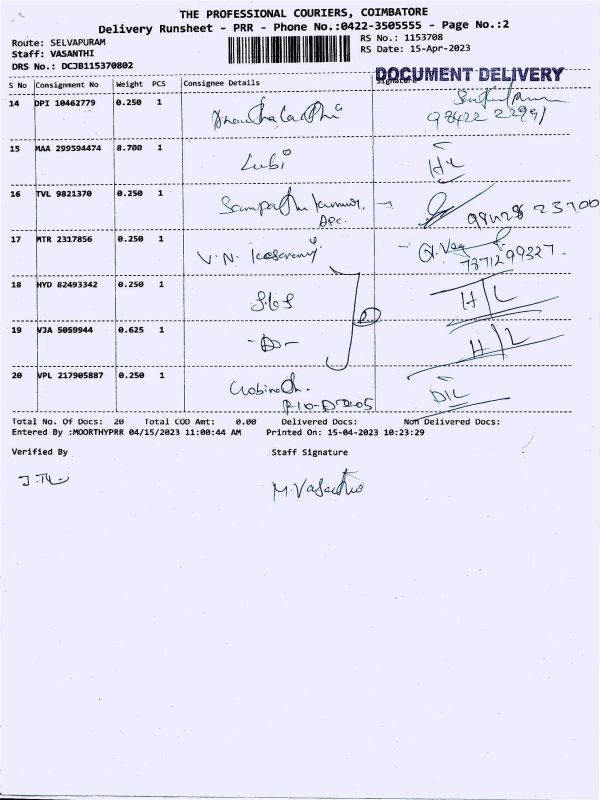 THE PROFESSIONAL COURIERS, COIMBATORE
Delivery Runsheet - PRR - Phone No.:0422-3505555 - Page No.:2
Route: SELVAPURAM RS No.: 1153708
Staff: VASANTHI RS Date: 15-Apr-2023
DRS No.: DCJB115370802
DOCUMENT DELIVERY
S No Consignment No Weight PCS Consignee Details Signature
14 DPI 10462779 0.250 1
98422 22991
15 MAA 299594474 8.700 1 Lubi H/L
16 TVL 9821370 0.250 1 Sampath kumar.
17 MTR 2317856 0.250 1 V.N.
18 HYD 82493342 0.250 1 H/L
19 VJA 5059944 0.625 1 -Do- H/L
20 VPL 217905887 0.250 1
Total No. Of Docs: 20 Total COD Amt: 0.00 Delivered Docs: Non Delivered Docs:
Entered By :MOORTHYPRR 04/15/2023 11:00:44 AM Printed On: 15-04-2023 10:23:29
Verified By Staff Signature
M.Vasantha